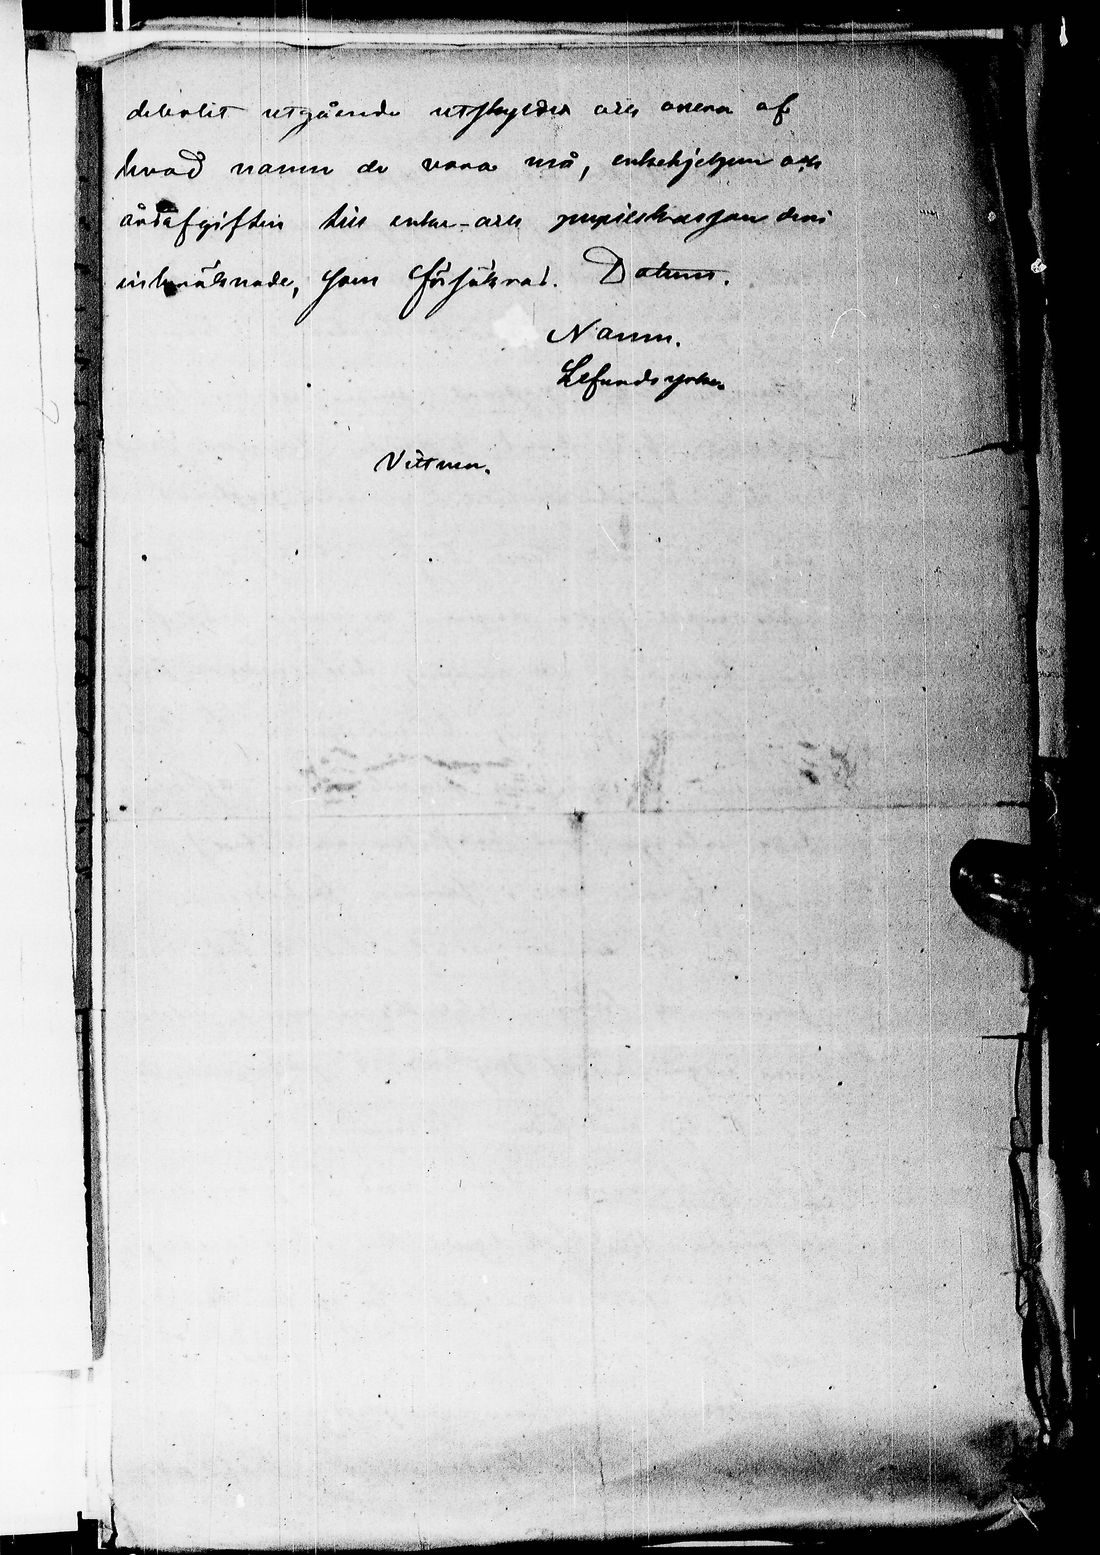 debolit utgående utskylder och onera af
hvad namn de vara må, enkehjelpen och
årsafgiften till enke- och pupillskassan deri
inberäknade, som försäkras. Datum.
Namn.
Lefnadsyrke.
Vittnen.